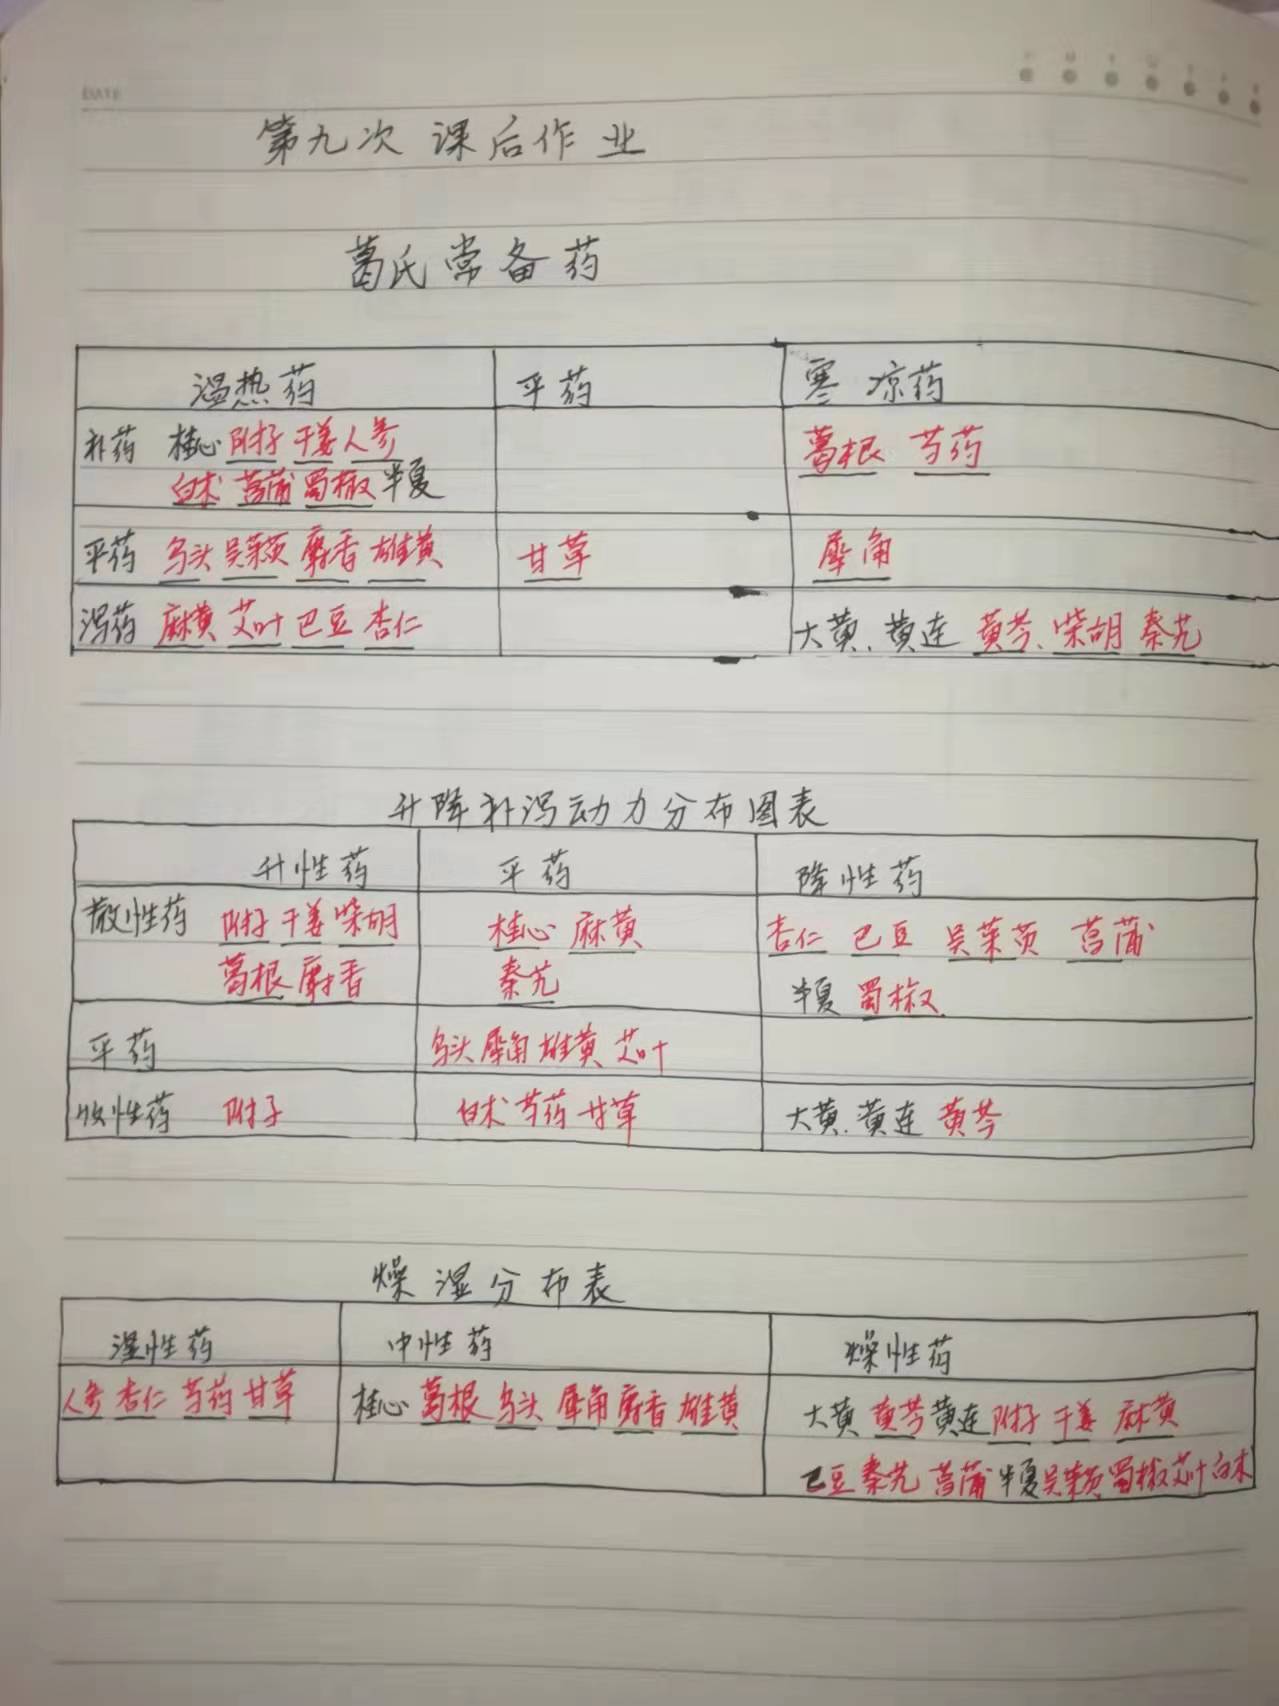 DATE
第九次 课后作业
葛氏常备药
温热药 平药 寒凉药
补药 桂心 附子 干姜 人参 葛根 芍药
白术 菖蒲 蜀椒 半夏
平药 乌头 吴茱萸 麝香 雄黄 甘草 犀角
泻药 麻黄 艾叶 巴豆 杏仁 大黄、黄连 黄芩、柴胡 秦艽
升降补泻动力分布图表
升性药 平药 降性药
散性药 附子 干姜 柴胡 桂心 麻黄 杏仁 巴豆 吴茱萸 菖蒲
葛根 麝香 秦艽 半夏 蜀椒
平药 乌头 犀角 雄黄 艾叶
收性药 附子 白术 芍药 甘草 大黄、黄连 黄芩
燥湿分布表
湿性药 中性药 燥性药
人参 杏仁 芍药 甘草 桂心 葛根 乌头 犀角 麝香 雄黄 大黄 黄芩 黄连 附子 干姜 麻黄
巴豆 秦艽 菖蒲 半夏 吴茱萸 蜀椒 艾叶 白术